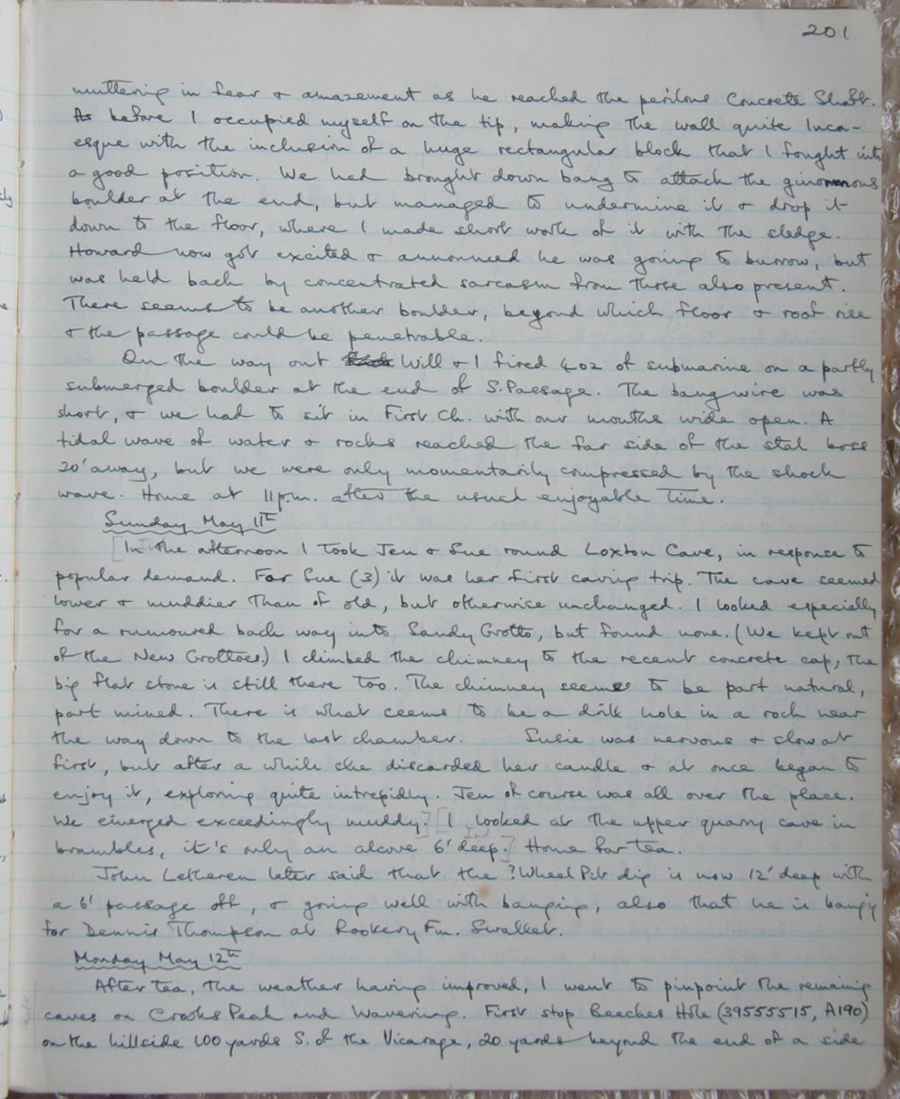 201
muttering in fear & amazement as he reached the perilous Concrete Shaft.
As before I occupied myself on the tip, making the wall quite Inca-
esque with the inclusion of a huge rectangular block that I fought into
a good position. We had brought down bang to attack the ginormous
boulder at the end, but managed to undermine it & drop it
down to the floor, where I made short work of it with the sledge.
Howard now got excited & announced he was going to burrow, but
was held back by concentrated sarcasm from those also present.
There seems to be another boulder, beyond which floor & roof rise
& the passage could be penetrable.
On the way out Will & I fired 4oz of submarine on a partly
submerged boulder at the end of S. Passage. The bang wire was
short, & we had to sit in First Ch. with our mouths wide open. A
tidal wave of water & rocks reached the far side of the stal boss
20' away, but we were only momentarily compressed by the shock
wave. Home at 11p.m. after the usual enjoyable time.
Sunday May 11th
[In the afternoon I took Jen & Sue round Loxton Cave, in response to
popular demand. For Sue (3) it was her first caving trip. The cave seemed
lower & muddier than of old, but otherwise unchanged. I looked especially
for a rumoured back way into Sandy Grotto, but found none. (We kept out
of the New Grottoes.) I climbed the chimney to the recent concrete cap, the
big flat stone is still there too. The chimney seems to be part natural,
part mined. There is what seems to be a drill hole in a rock near
the way down to the last chamber. Susie was nervous & slow at
first, but after a while she discarded her candle & at once began to
enjoy it, exploring quite intrepidly. Jen of course was all over the place.
We emerged exceedingly muddy.] [I looked at the upper quarry cave in
brambles, it's only an alcove 6' deep.] Home for tea.
John Letheren later said that the ?Wheel Pit dig is now 12' deep with
a 6' passage off, & going well with banging, also that he is banging
for Dennis Thompson at Rookery Fm. Swallet.
Monday May 12th
After tea, the weather having improved, I went to pinpoint the remaining
caves on Crooks Peak and Wavering. First stop Beeches Hole (39555515, A190)
on the hillside 100 yards S. of the Vicarage, 20 yards beyond the end of a side